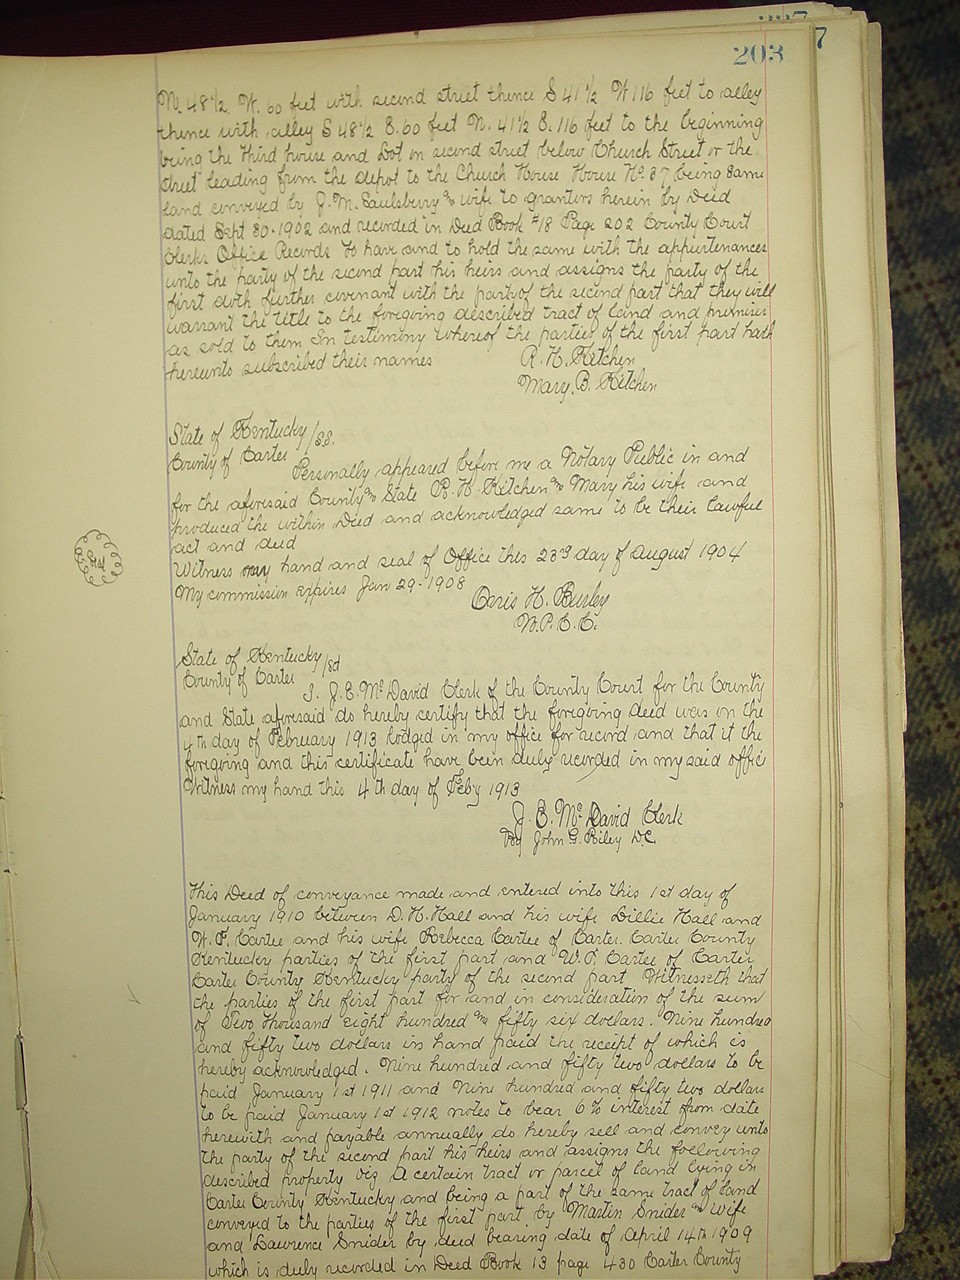 203
7
N. 48 1/2 W. 60 feet with second street thence S 41 1/2 W 116 feet to alley
thence with alley S 48 1/2 E. 60 feet N. 41 1/2 E. 116 feet to the beginning
being the third house and Lot on second street below Church Street or the
street leading from the depot to the Church House House No. 37 being same
land conveyed by J. M. Saulsberry & wife to grantors herein by Deed
dated Sept 30-1902 and recorded in Deed Book #18 Page 202 County Court
Clerks Office Records To have and to hold the same with the appurtenances
unto the party of the second part his heirs and assigns the party of the
first doth further covenant with the party of the second part that they will
warrant the title to the foregoing described tract of land and premises
as sold to them In testimony whereof the parties of the first part hath
hereunto subscribed their names
R. H. Kitchen
Mary. B. Kitchen
State of Kentucky /SS.
County of Carter
Personally appeared before me a Notary Public in and
for the aforesaid County & State R. H. Kitchen & Mary his wife and
produced the within Deed and acknowledged same to be their lawful
act and deed
Witness my hand and seal of Office this 23rd day of August 1904
My commission expires Jan 29-1908
Seal
H.
N.P.C.C.
State of Kentucky /Sct
County of Carter
I. J. E. McDavid Clerk of the County Court for the County
and State aforesaid do hereby certify that the foregoing deed was on the
4th day of February 1913 lodged in my office for record and that it the
foregoing and this certificate have been duly recorded in my said office
Witness my hand this 4th day of Feby 1913
J. E. McDavid Clerk
By John G. Riley D.C.
This Deed of conveyance made and entered into this 1st day of
January 1910 between D. H. Hall and his wife Lillie Hall and
W. F. Cartee and his wife Rebecca Cartee of Carter. Carter County
Kentucky parties of the first part and W. P. Cartee of Carter
Carter County Kentucky party of the second part Witnesseth that
the parties of the first part for and in consideration of the sum
of Two thousand eight hundred & fifty six dollars. Nine hundred
and fifty two dollars in hand paid the receipt of which is
hereby acknowledged. Nine hundred and fifty two dollars to be
paid January 1st 1911 and Nine hundred and fifty two dollars
to be paid January 1st 1912 notes to bear 6% interest from date
herewith and payable annually do hereby sell and convey unto
the party of the second part his heirs and assigns the following
described property viz A certain tract or parcel of land lying in
Carter County Kentucky and being a part of the same tract of land
conveyed to the parties of the first part by Martin Snider & wife
and Lawrence Snider by deed bearing date of April 14th 1909
which is duly recorded in Deed Book 13 page 430 Carter County